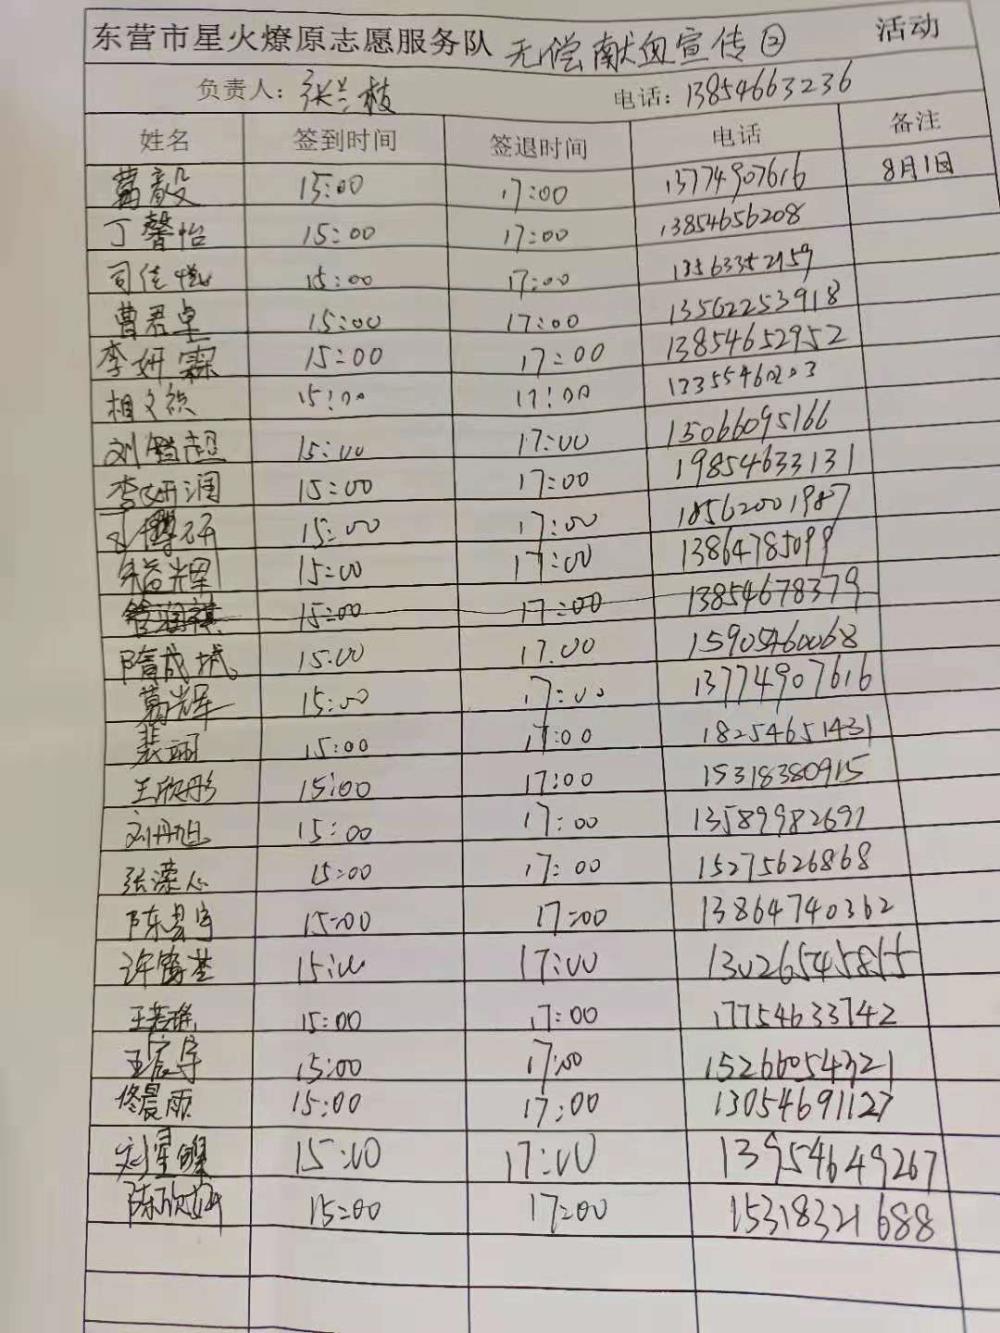 东营市星火燎原志愿服务队 无偿献血宣传② 活动
负责人：张兰枝 电话：13854663236
姓名 签到时间 签退时间 电话 备注
葛毅 15:00 17:00 13774907616 8月1日
丁馨怡 15:00 17:00 13854656208
司佳悦 15:00 17:00 13563352159
曹君卓 15:00 17:00 13562253918
李妍霖 15:00 17:00 13854652952
相文 15:00 17:00
刘 超 15:00 17:00 15066095166
李妍润 15:00 17:00 19854633131
博研 15:00 17:00 18562001987
朱益辉 15:00 17:00 13864785099
管润祺 15:00 17:00 13854678379
隋成城 15:00 17:00 15905460068
葛辉 15:00 17:00 13774907616
裴翊 15:00 17:00 18254651431
王欣彤 15:00 17:00 15318380915
刘丹旭 15:00 17:00 13589982691
张滦心 15:00 17:00 15275626868
陈昱宇 15:00 17:00 13864740362
许 基 15:00 17:00 13026545855
王若 15:00 17:00 17754633742
王宸宇 15:00 17:00 15266054321
佟晨雨 15:00 17:00 13054691127
刘星 15:00 17:00 13954649267
陈欣妍 15:00 17:00 15318321688